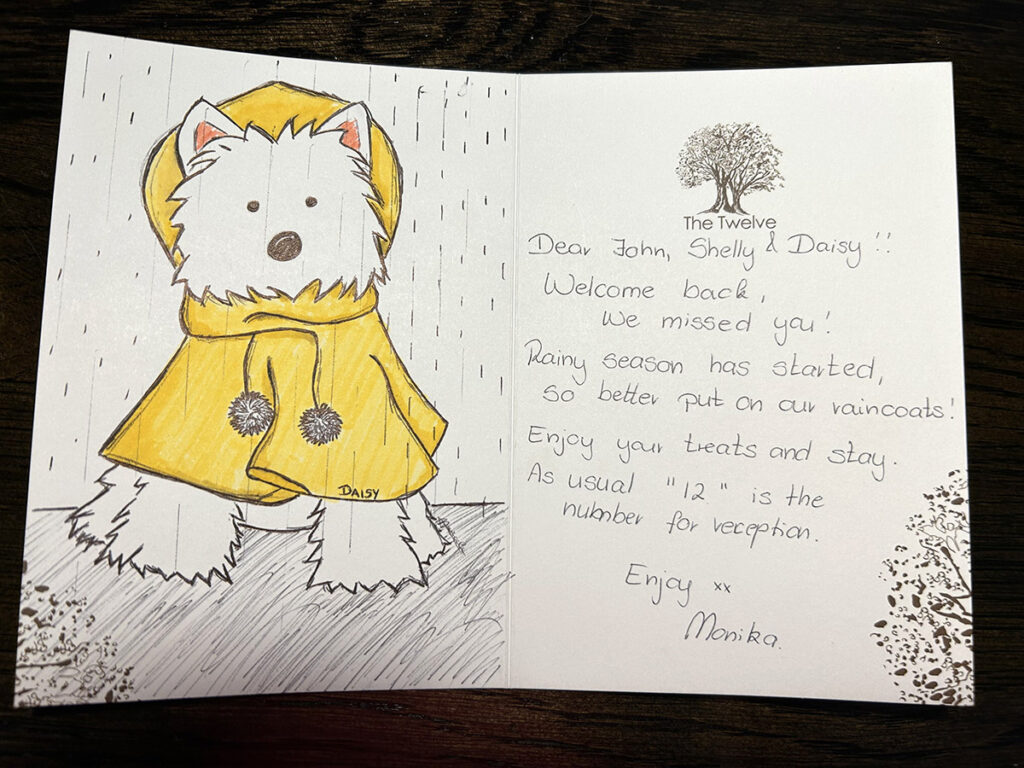 DAISY
The Twelve
Dear John, Shelly & Daisy !!
Welcome back,
We missed you!
Rainy season has started,
so better put on our raincoats!
Enjoy your treats and stay.
As usual "12" is the
number for reception.
Enjoy xx
Monika.